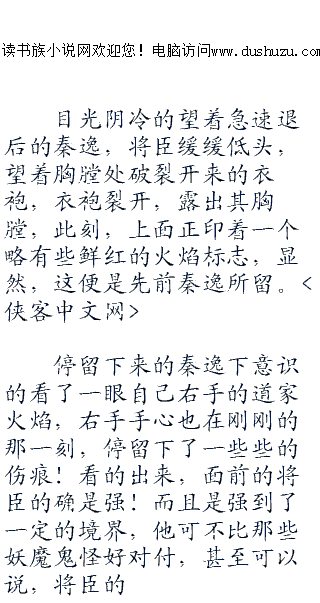 读书族小说网欢迎您！电脑访问www.dushuzu.com
目光阴冷的望着急速退
后的秦逸，将臣缓缓低头，
望着胸膛处破裂开来的衣
袍，衣袍裂开，露出其胸
膛，此刻，上面正印着一个
略有些鲜红的火焰标志，显
然，这便是先前秦逸所留。<
侠客中文网>
停留下来的秦逸下意识
的看了一眼自己右手的道家
火焰，右手手心也在刚刚的
那一刻，停留下了一些些的
伤痕！看的出来，面前的将
臣的确是强！而且是强到了
一定的境界，他可不比那些
妖魔鬼怪好对付，甚至可以
说，将臣的